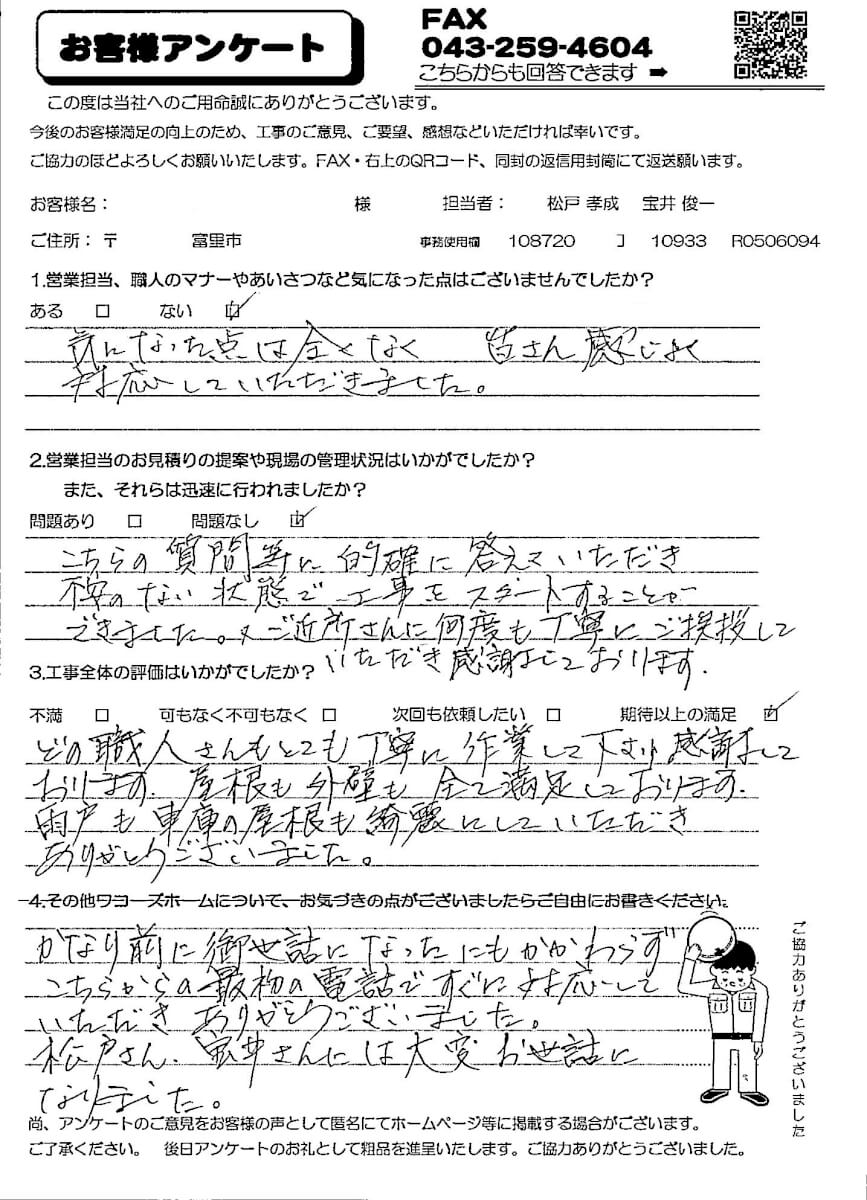 お客様アンケート
FAX
043-259-4604
こちらからも回答できます ➡
この度は当社へのご用命誠にありがとうございます。
今後のお客様満足の向上のため、工事のご意見、ご要望、感想などいただければ幸いです。
ご協力のほどよろしくお願いいたします。FAX・右上のQRコード、同封の返信用封筒にて返送願います。
お客様名： 様 担当者： 松戸 孝成 宝井 俊一
ご住所：〒 富里市 事務使用欄 108720 コ 10933 R0506094
1.営業担当、職人のマナーやあいさつなど気になった点はございませんでしたか？
ある □ ない ☑
気になった点は全くなく 皆さん感じよく
対応していただきました。
2.営業担当のお見積りの提案や現場の管理状況はいかがでしたか？
また、それらは迅速に行われましたか？
問題あり □ 問題なし ☑
こちらの質問等に的確に答えていただき
不安のない状態で工事をスタートすることが
できました。又ご近所さんに何度も丁寧にご挨拶して
いただき感謝しております.
3.工事全体の評価はいかがでしたか？
不満 □ 可もなく不可もなく □ 次回も依頼したい □ 期待以上の満足 ☑
どの職人さんもとても丁寧に作業して下さり感謝して
おります. 屋根も外壁も全て満足しております.
雨戸も車庫の屋根も綺麗にしていただき
ありがとうございました。
4.その他ワコーズホームについて、お気づきの点がございましたらご自由にお書きください。
かなり前に御世話になったにもかかわらず
こちらからの最初の電話ですぐに対応して
いただきありがとうございました。
松戸さん、宝井さんには大変お世話に
なりました。
ご協力ありがとうございました
尚、アンケートのご意見をお客様の声として匿名にてホームページ等に掲載する場合がございます。
ご了承ください。 後日アンケートのお礼として粗品を進呈いたします。ご協力ありがとうございました。